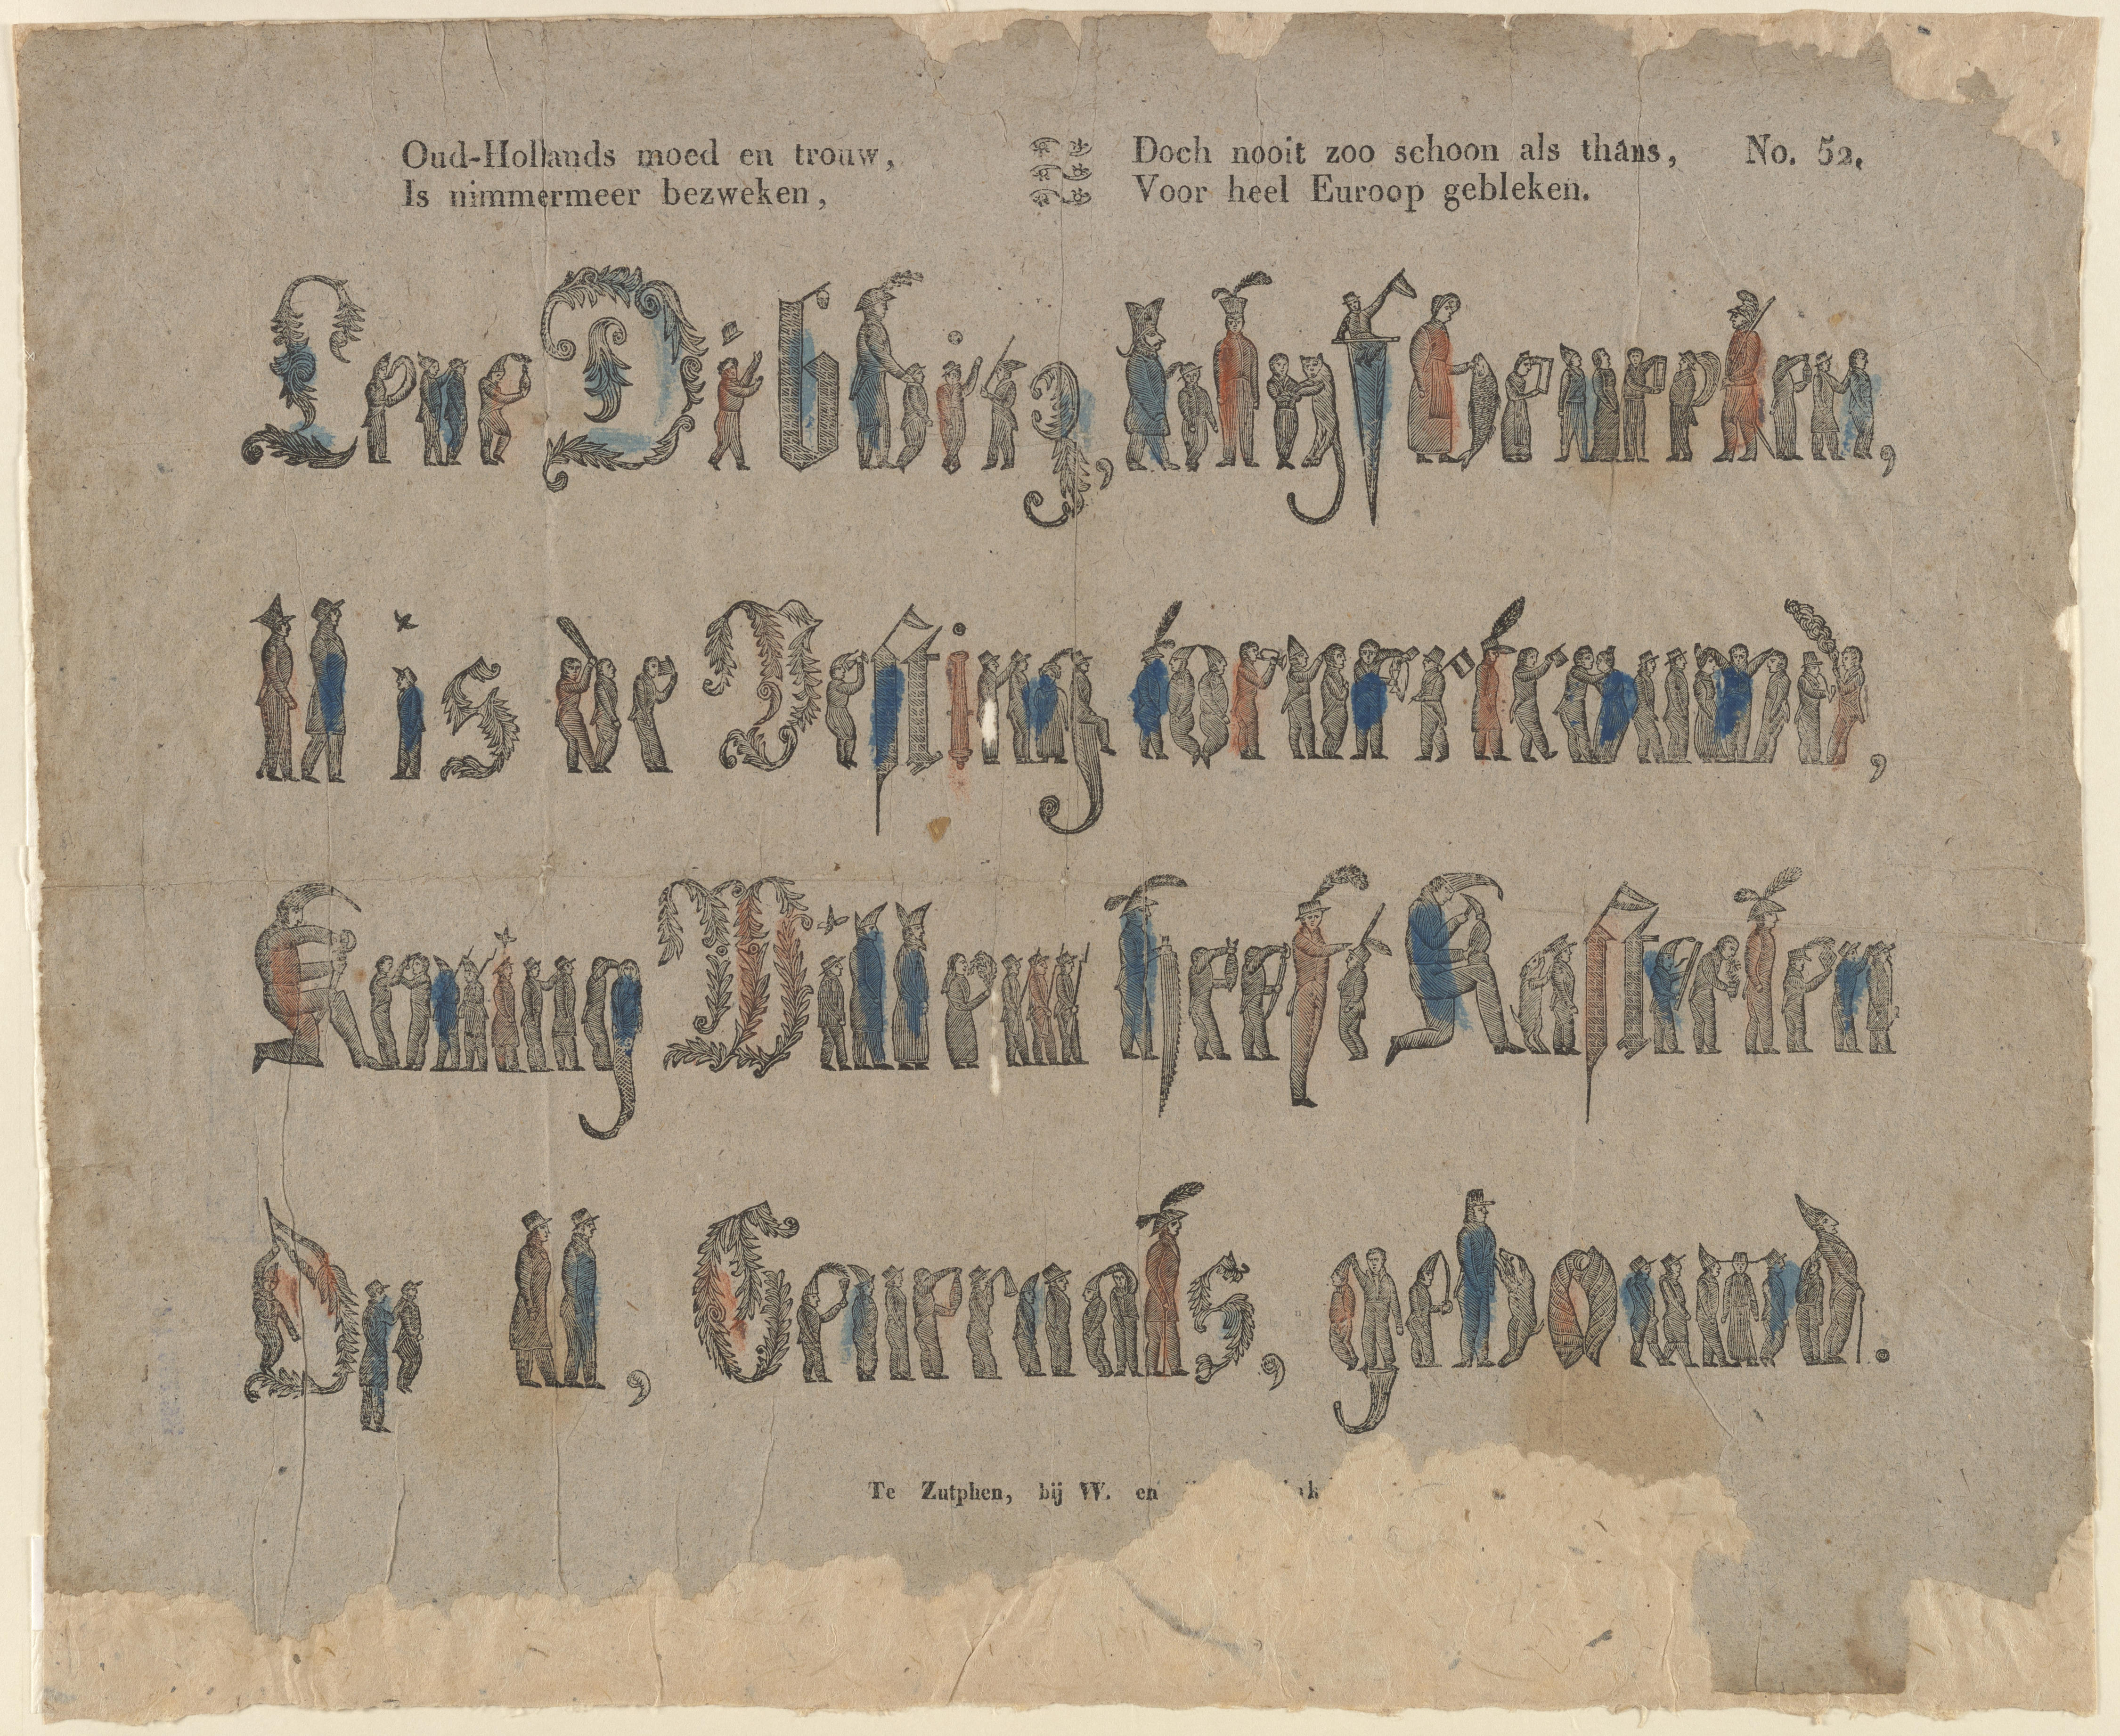 Oud-Hollands moed en trouw,
Is nimmermeer bezweken,
Doch nooit zoo schoon als thans,
Voor heel Euroop gebleken.
No. 52.
Leve Dibbitz, blyf beveelen,
U is de Vesting toevertrouwd,
Koning Willem heeft Kasteelen
Op U, Generaals, gebouwd.
Te Zutphen, bij W. en